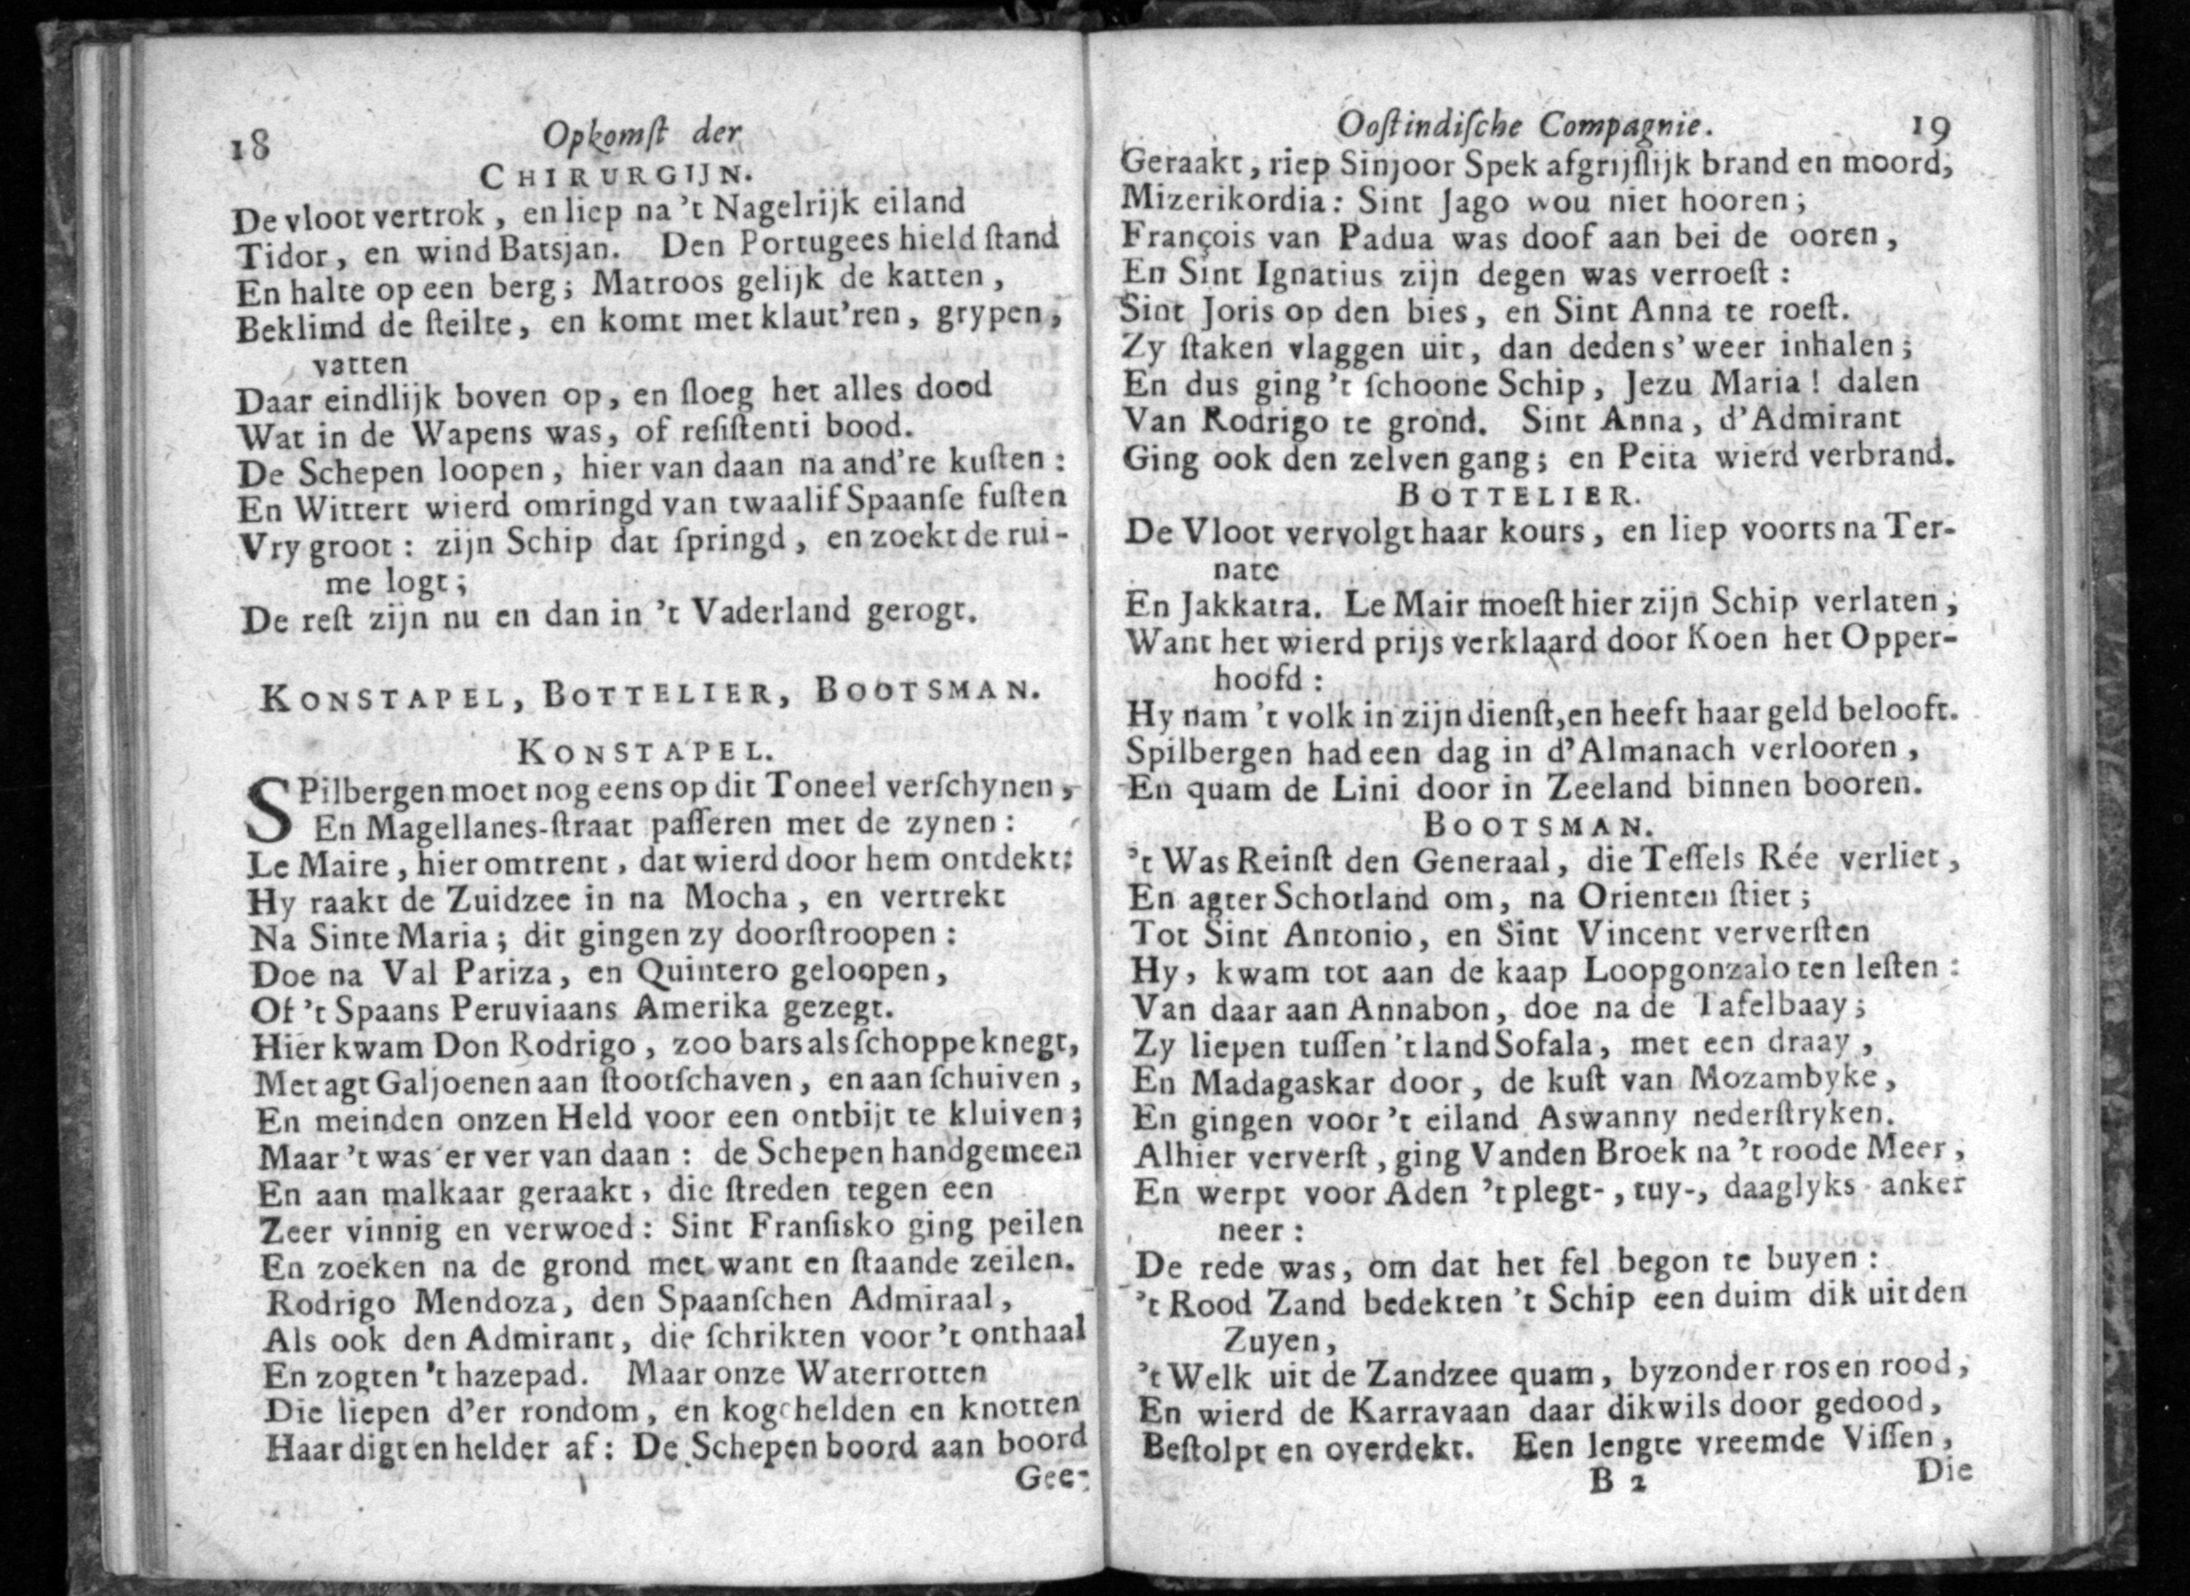 18 Opkomſt der
CHIRURGIJN.
De vloot vertrok, en liep na 't Nagelrijk eiland
Tidor, en wind Batsjan. Den Portugees hield ſtand
En halte op een berg; Matroos gelijk de katten,
Beklimd de ſteilte, en komt met klaut'ren, grypen,
vatten
Daar eindlijk boven op, en ſloeg het alles dood
Wat in de Wapens was, of reſiſtenti bood.
De Schepen loopen, hier van daan na and're kuſten:
En Wittert wierd omringd van twaalif Spaanſe fuſten
Vry groot: zijn Schip dat ſpringd, en zoekt de rui-
me logt;
De reſt zijn nu en dan in 't Vaderland gerogt.
KONSTAPEL, BOTTELIER, BOOTSMAN.
KONSTAPEL.
SPilbergen moet nog eens op dit Toneel verſchynen,
En Magellanes-ſtraat paſſeren met de zynen:
Le Maire, hier omtrent, dat wierd door hem ontdekt;
Hy raakt de Zuidzee in na Mocha, en vertrekt
Na Sinte Maria; dit gingen zy doorſtroopen:
Doe na Val Pariza, en Quintero geloopen,
Of 't Spaans Peruviaans Amerika gezegt.
Hier kwam Don Rodrigo, zoo bars als ſchoppeknegt,
Met agt Galjoenen aan ſtootſchaven, en aan ſchuiven,
En meinden onzen Held voor een ontbijt te kluiven;
Maar 't was er ver van daan: de Schepen handgemeen
En aan malkaar geraakt, die ſtreden tegen een
Zeer vinnig en verwoed: Sint Franſisko ging peilen
En zoeken na de grond met want en ſtaande zeilen.
Rodrigo Mendoza, den Spaanſchen Admiraal,
Als ook den Admirant, die ſchrikten voor 't onthaal
En zogten 't hazepad. Maar onze Waterrotten
Die liepen d'er rondom, en kogchelden en knotten
Haar digt en helder af: De Schepen boord aan boord
Gee-
Ooſtindiſche Compagnie. 19
Geraakt, riep Sinjoor Spek afgrijſlijk brand en moord,
Mizerikordia: Sint Jago wou niet hooren;
François van Padua was doof aan bei de ooren,
En Sint Ignatius zijn degen was verroeſt:
Sint Joris op den bies, en Sint Anna te roeſt.
Zy ſtaken vlaggen uit, dan deden s' weer inhalen;
En dus ging 't ſchoone Schip, Jezu Maria! dalen
Van Rodrigo te grond. Sint Anna, d'Admirant
Ging ook den zelven gang; en Peita wierd verbrand.
BOTTELIER.
De Vloot vervolgt haar kours, en liep voorts na Ter-
nate
En Jakkatra. Le Mair moeſt hier zijn Schip verlaten,
Want het wierd prijs verklaard door Koen het Opper-
hoofd:
Hy nam 't volk in zijn dienſt, en heeft haar geld belooft.
Spilbergen had een dag in d'Almanach verlooren,
En quam de Lini door in Zeeland binnen booren.
BOOTSMAN.
't Was Reinſt den Generaal, die Teſſels Rée verliet,
En agter Schotland om, na Orienten ſtiet;
Tot Sint Antonio, en Sint Vincent ververſten
Hy, kwam tot aan de kaap Loopgonzalo ten leſten:
Van daar aan Annabon, doe na de Tafelbaay;
Zy liepen tuſſen 't land Sofala, met een draay,
En Madagaskar door, de kuſt van Mozambyke,
En gingen voor 't eiland Aswanny nederſtryken.
Alhier ververſt, ging Vanden Broek na 't roode Meer,
En werpt voor Aden 't plegt-, tuy-, daaglyks anker
neer:
De rede was, om dat het fel begon te buyen:
't Rood Zand bedekten 't Schip een duim dik uit den
Zuyen,
't Welk uit de Zandzee quam, byzonder ros en rood,
En wierd de Karravaan daar dikwils door gedood,
Beſtolpt en overdekt. Een lengte vreemde Viſſen,
B 2 Die